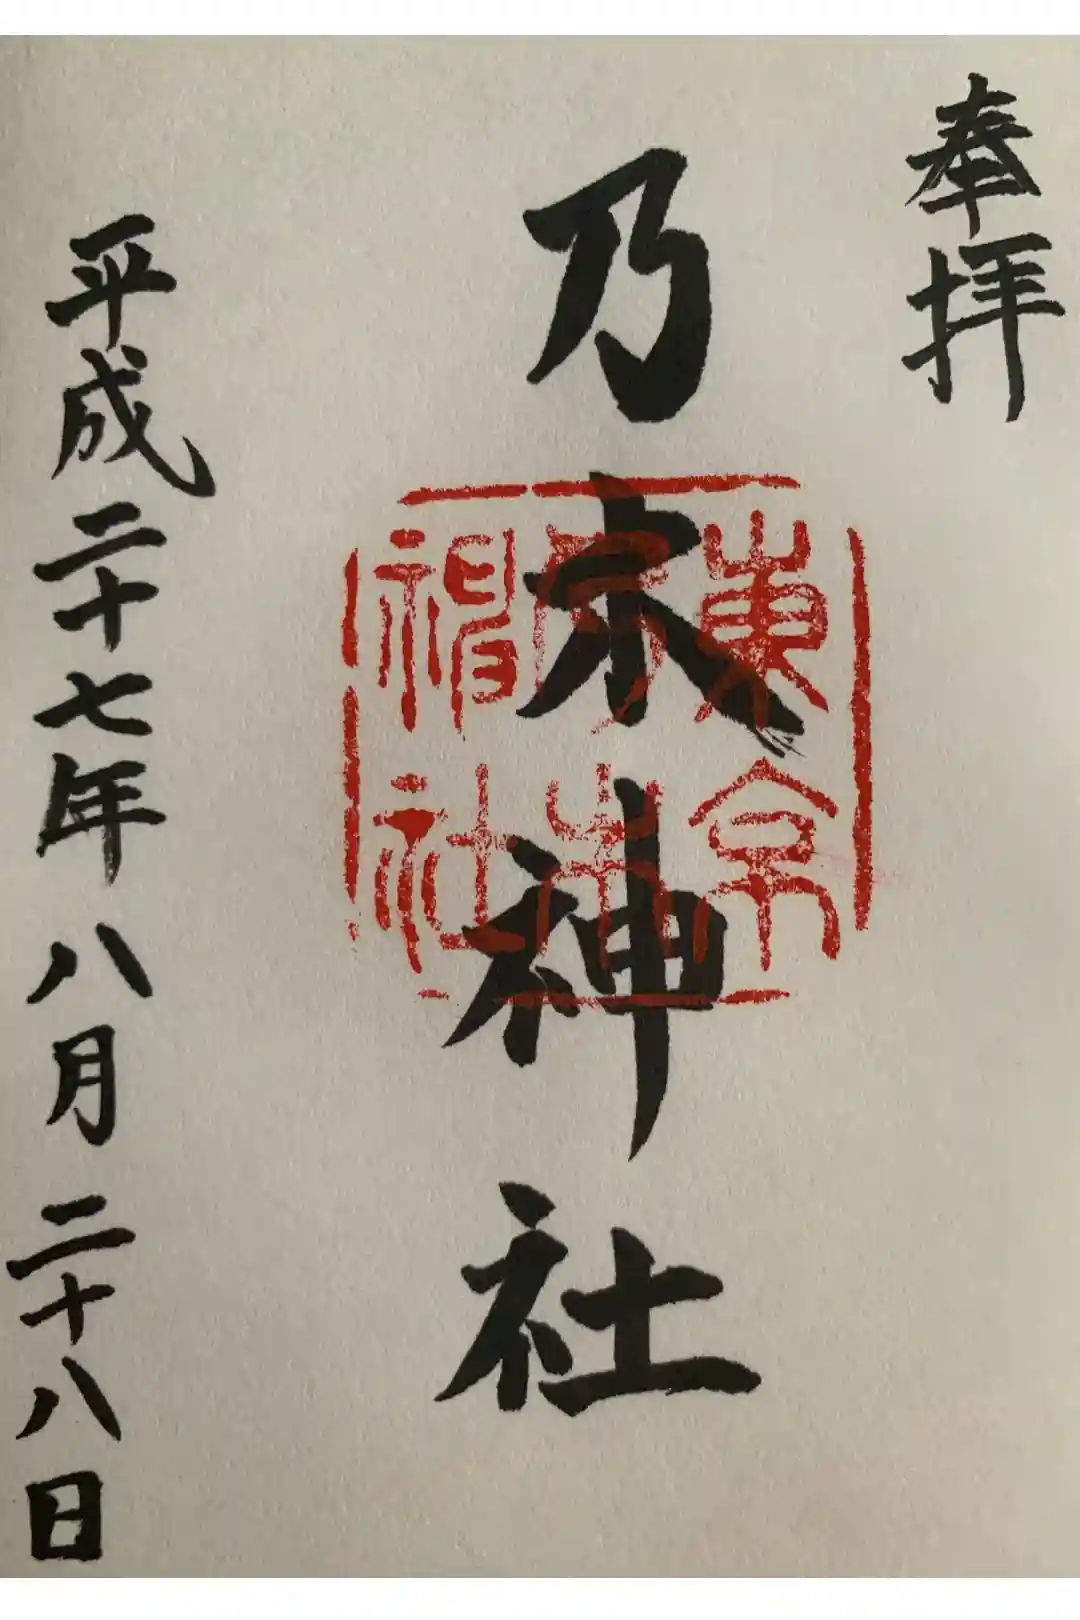 奉拝
乃木神社
東京
乃木
神社
平成二十七年八月二十八日